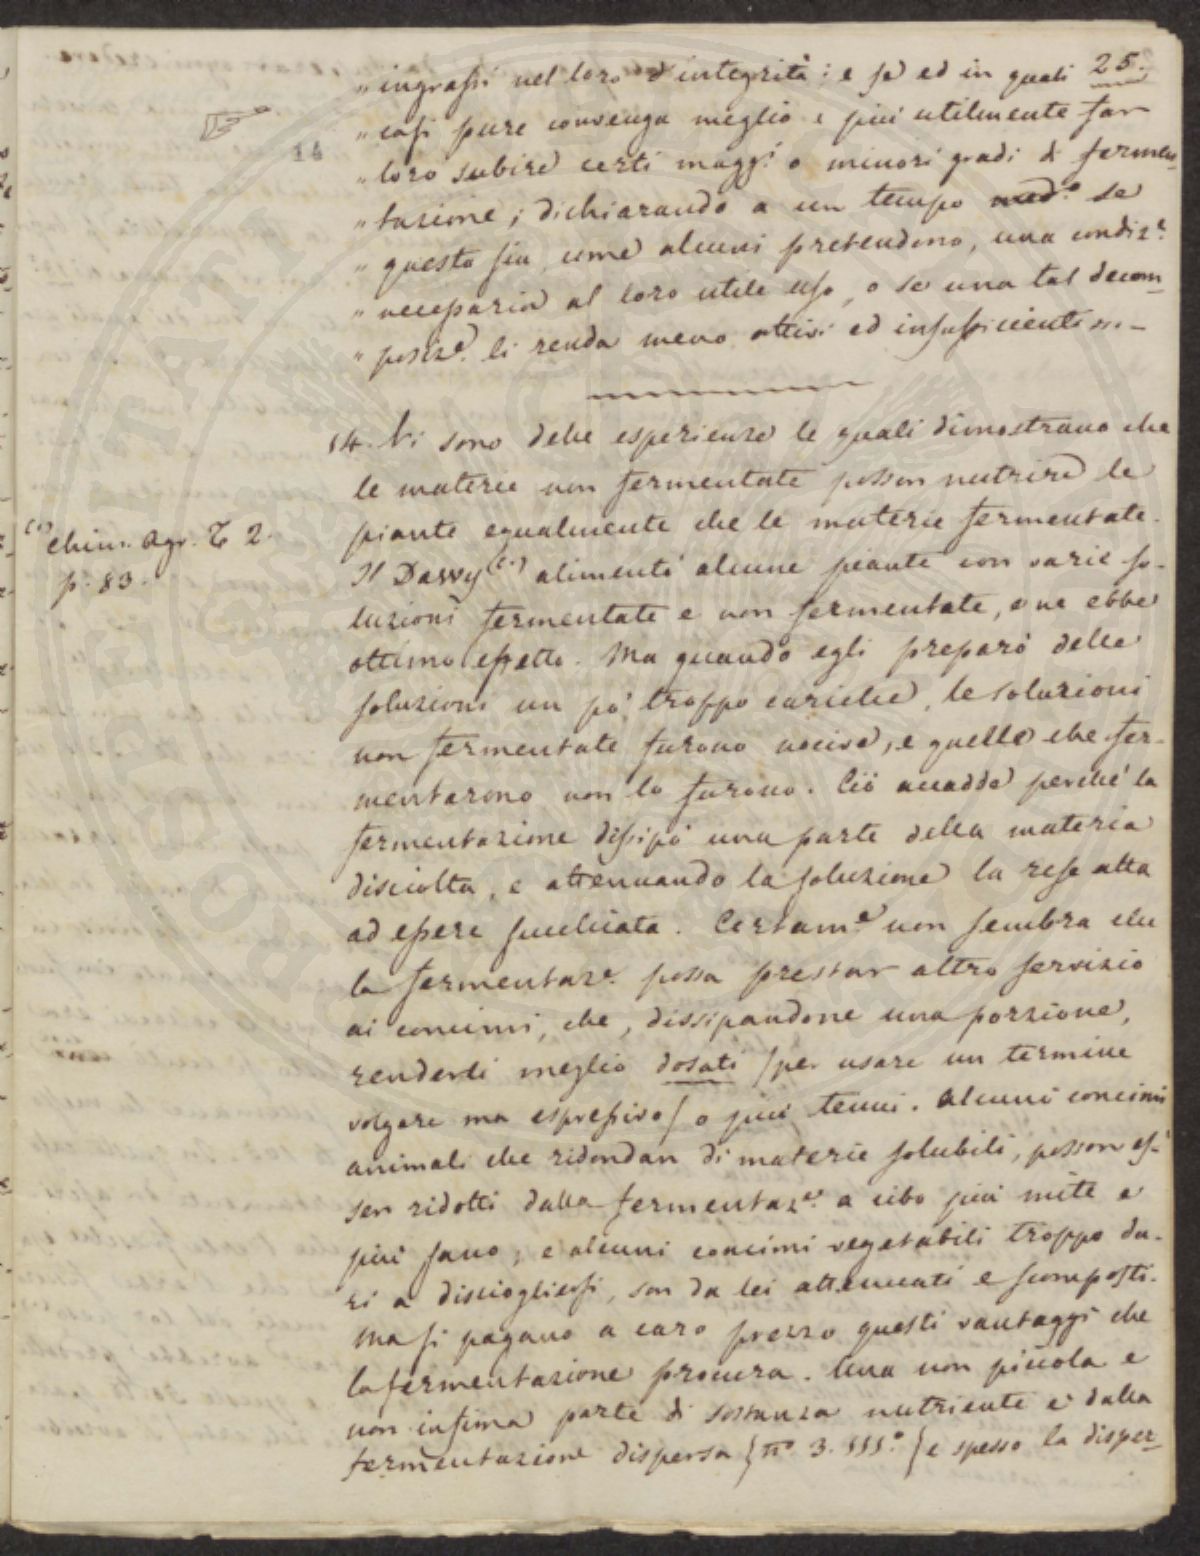 25.
„ ingrassi nel loro d'integrità; e se ed in quali
„ casi pure convenga meglio e più utilmente far
14
„ loro subire certi magg.i o minori gradi di fermen-
„ tazione; dichiarando a un tempo med.o se
„ questa sia, come alcuni pretendono, una condiz.e
„ necessaria al loro utile uso, o se una tal decom-
„ posiz.e li renda meno attivi ed insufficienti
14. Vi sono delle esperienze le quali dimostrano che
le materie non fermentate posson nutrire le
piante egualmente che le materie fermentate.
(1) Chim. Agr. T. 2.
p. 83.
Il Dawy (1) alimentò alcune piante con varie so-
luzioni fermentate e non fermentate, e ne ebbe
ottimo effetto. Ma quando egli preparò delle
soluzioni un pò troppo cariche, le soluzioni
non fermentate furono nocive, e quelle che fer-
mentarono non lo furono. Ciò accadde perchè la
fermentazione dissipò una parte della materia
disciolta, e attenuando la soluzione la rese atta
ad essere succhiata. Certam.e non sembra che
la fermentaz.e possa prestar altro servizio
ai concimi, che, dissipandone una porzione,
renderli meglio dosati /per usare un termine
volgare ma espressivo/ o più tenui. Alcuni concimi
animali che ridondan di materie solubili, posson es-
ser ridotti dalla fermentaz.e a cibo più mite e
più sano; e alcuni concimi vegetabili troppo du-
ri a disciogliersi, son da lei attenuati e scomposti.
Ma si pagano a caro prezzo questi vantaggi che
la fermentazione procura. Una non piccola e
non infima parte di sostanza nutriente è dalla
fermentazione dispersa { n.o 3. §§§.o } e spesso la disper-